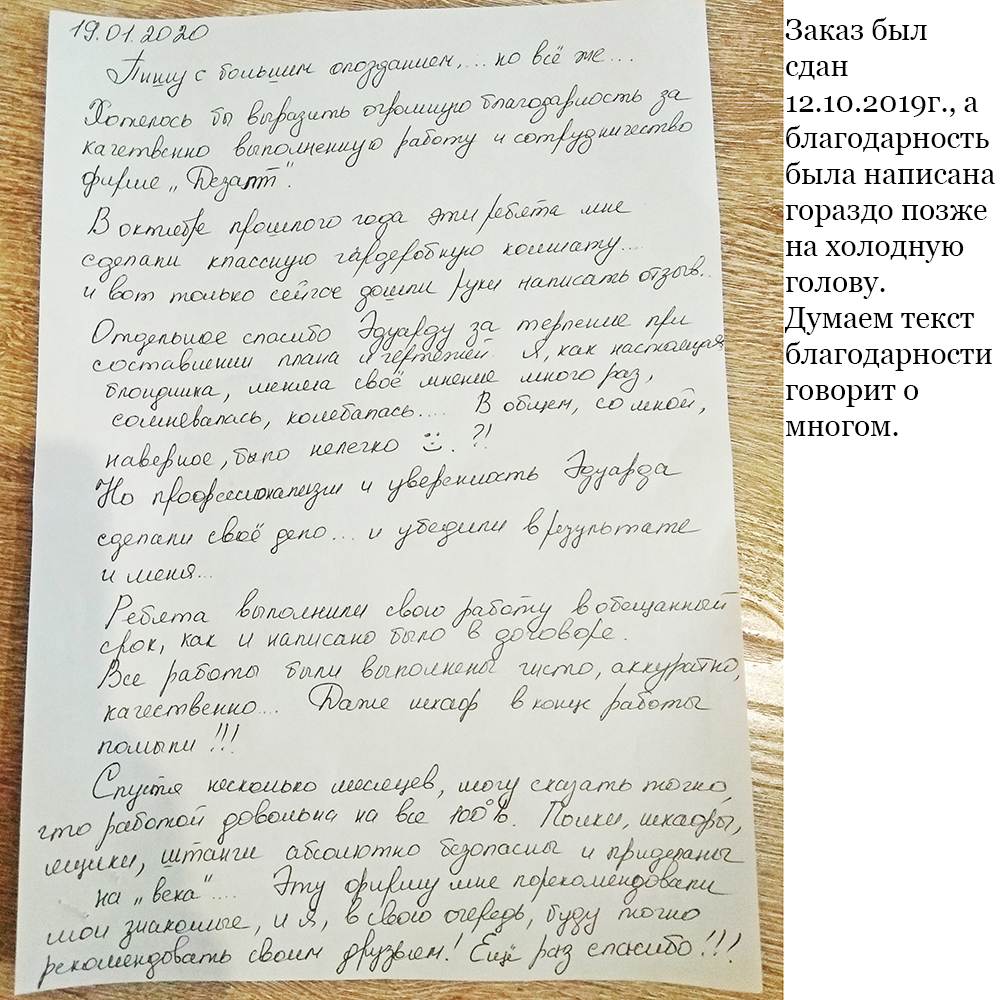 19.01.2020
Пишу с большим опозданием,... но всё же...
Хотелось бы выразить огромную благодарность за
качественно выполненную работу и сотрудничество
фирме „Дезапт".
В октябре прошлого года эти ребята мне
сделали классную гардеробную комнату....
и вот только сейчас дошли руки написать отзыв..
Отдельное спасибо Эдуарду за терпение при
составлении плана и чертежей. Я, как настоящая
блондинка, меняла своё мнение много раз,
сомневалась, колебалась.... В общем, со мной,
наверное, было нелегко :). ?!
Но профессионализм и уверенность Эдуарда
сделали своё дело... и убедили в результате
и меня...
Ребята выполнили свою работу в обещанный
срок, как и написано было в договоре.
Все работы были выполнены чисто, аккуратно,
качественно.... Даже шкаф в конце работы
помыли!!!
Спустя несколько месяцев, могу сказать точно,
что работой довольна на все 100%. Полки, шкафы,
ящики, штанги абсолютно безопасны и приделаны
на „века".... Эту фирму мне порекомендовали
мои знакомые, и я, в свою очередь, буду точно
рекомендовать своим друзьям! Ещё раз спасибо!!!
Заказ был
сдан
12.10.2019г., а
благодарность
была написана
гораздо позже
на холодную
голову.
Думаем текст
благодарности
говорит о
многом.